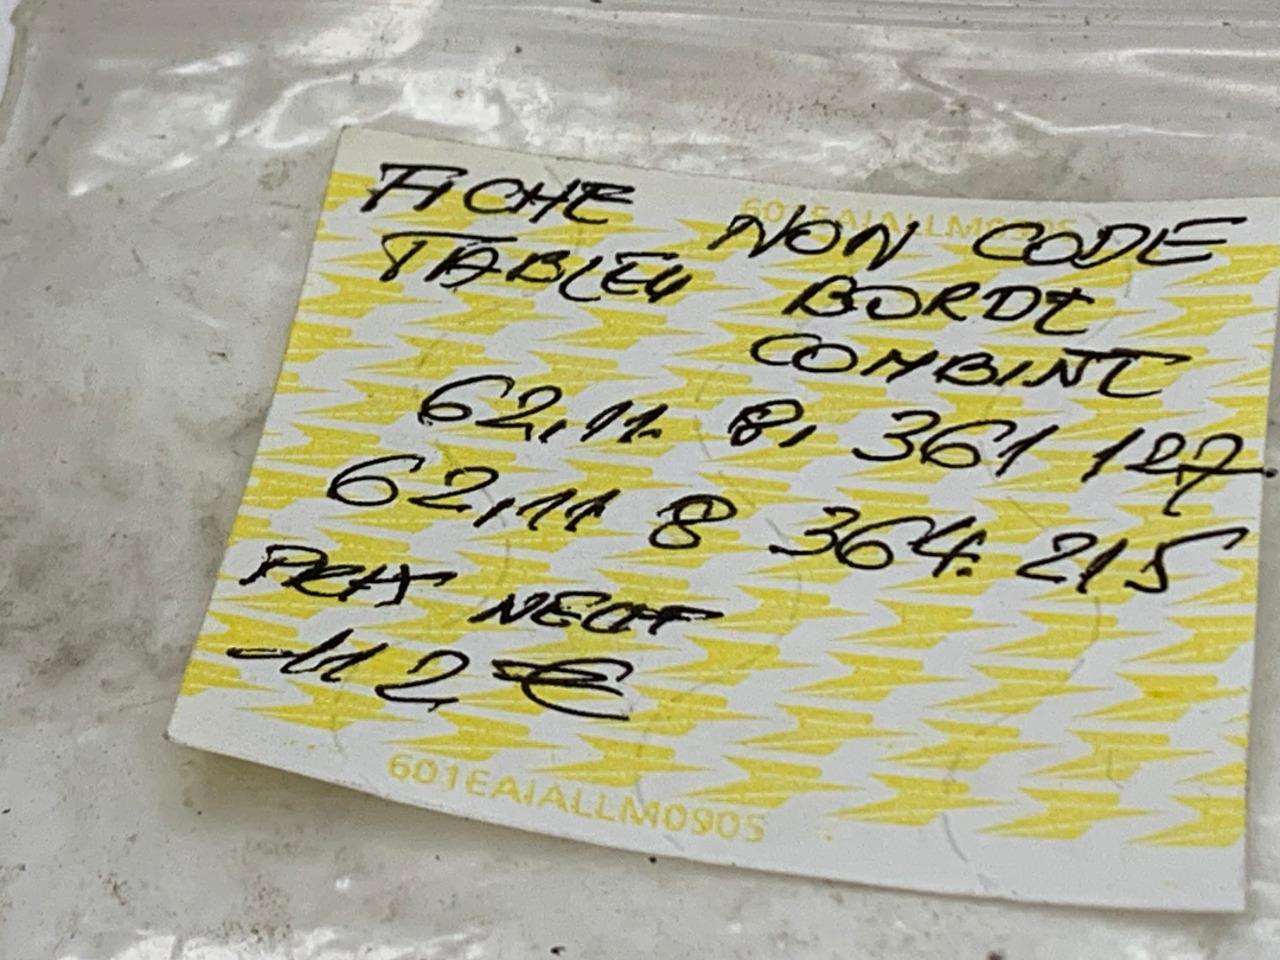 601EAIALLM0905
FICHE NON CODE
TABLEU BORDE
COMBINE
62,11. 8, 361 127
62,11 8 364. 215
PRIX NEUF
112 €
601EAIALLM0905